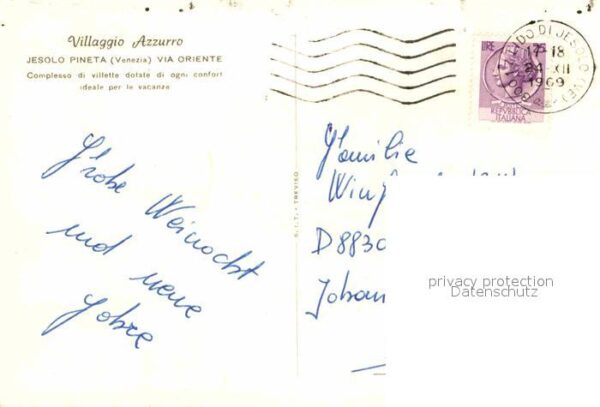 Villaggio Azzurro
JESOLO PINETA (Venezia) VIA ORIENTE
Complesso di villette dotate di ogni confort
ideale per le vacanze
LIDO DI JESOLO (VE)
17-18
24-XII
1969
LIRE 25
REPUBBLICA
ITALIANA
Frohe Weinacht
und neue
Jahre
S.I.T. - TREVISO
Familie
D 8830
privacy protection
Datenschutz